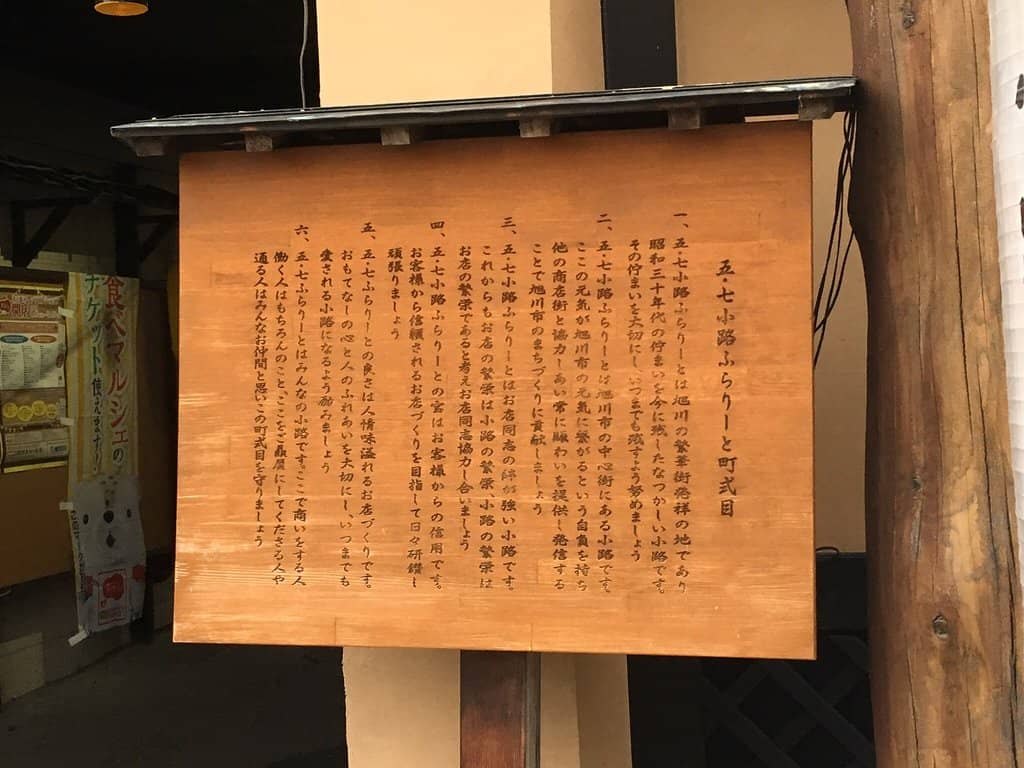 五・七小路ふらりーと町弐目
一、五七小路ふらりーとは旭川の繁華街発祥の地であり
昭和三十年代の佇まいを今に残したなつかしい小路です。
その佇まいを大切にし、いつまでも残すよう努めましょう
二、五七小路ふらりーとは旭川市の中心街にある小路です。
ここの元気が旭川市の元気に繋がるという自負を持ち
他の商店街と協力しあい常に賑わいを提供し発信する
ことで旭川市のまちづくりに貢献しましょう
三、五七小路ふらりーとはお店同志の絆が強い小路です。
これからもお店の繁栄は小路の繁栄、小路の繁栄は
お店の繁栄であると考えお店同志協力し合いましょう
四、五七小路ふらりーとの宝はお客様からの信用です。
お客様から信頼されるお店づくりを目指して日々研鑽し
頑張りましょう
五、五七ふらりーとの良さは人情味溢れるお店づくりです。
おもてなしの心と人のふれあいを大切にし、いつまでも
愛される小路になるよう励みましょう
六、五七ふらりーとはみんなの小路です。ここで商いをする人
働く人はもちろんのこと、ここをご贔屓にしてくださる人や
通る人はみんなお仲間と思いこの町弐目を守りましょう
食ベマルシェの
チケット使えます